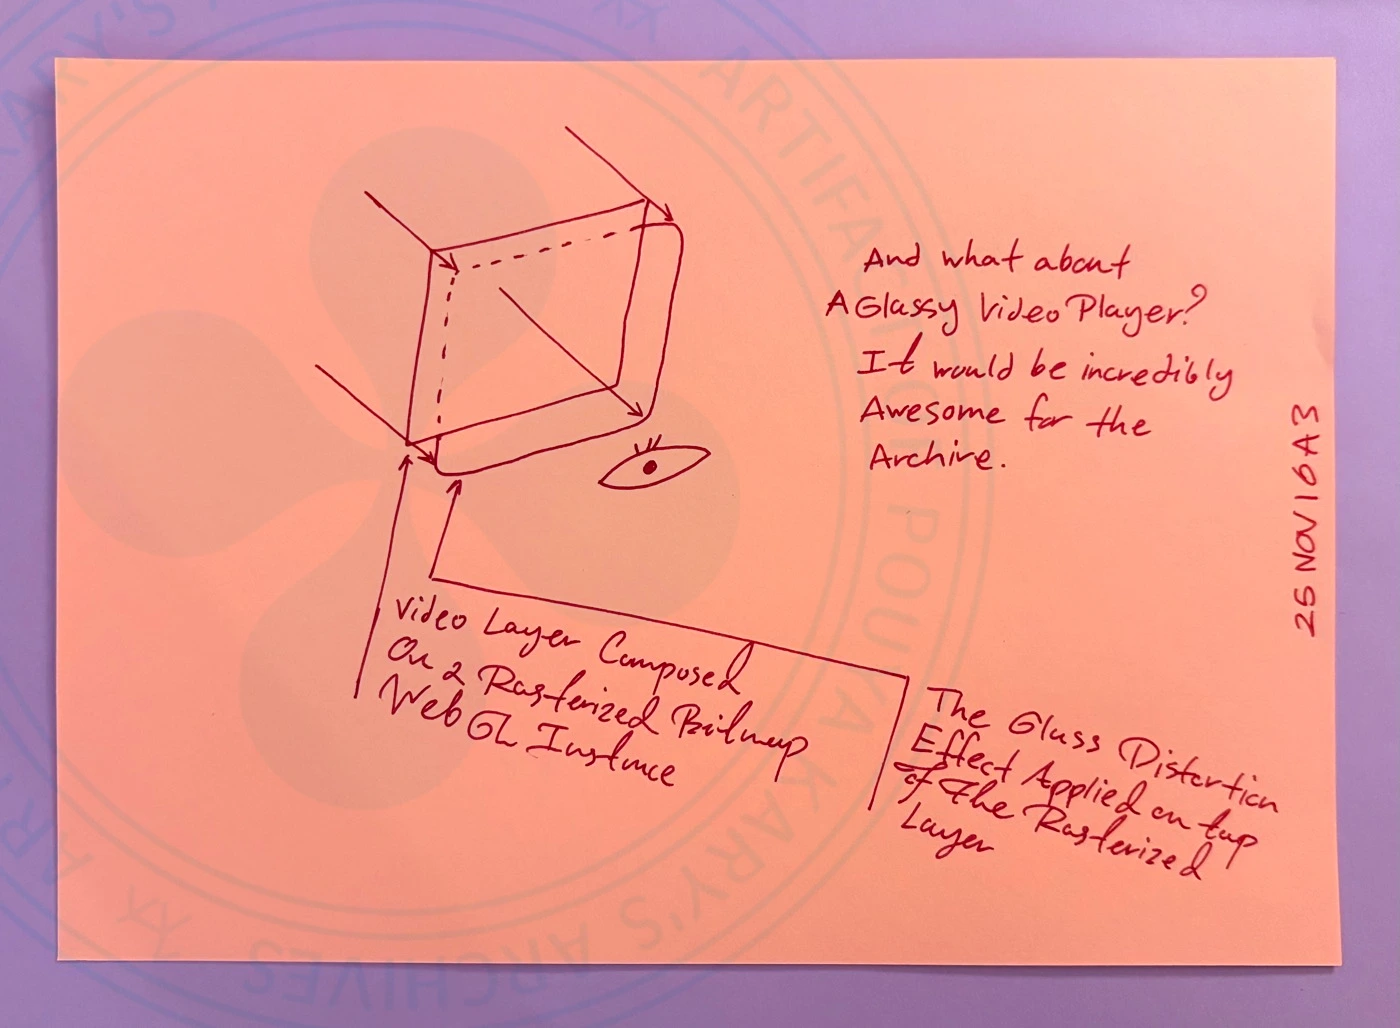 And what about
A Glassy Video Player?
It would be incredibly
Awesome for the
Archive.
25 NOV 16 A3
Video Layer Composed
On a Rasterized Bitmap
WebGL Instance
The Glass Distortion
Effect Applied on top
of the Rasterized
Layer
ARTIFACT OF POUYA KARY'S ARCHIVES XX